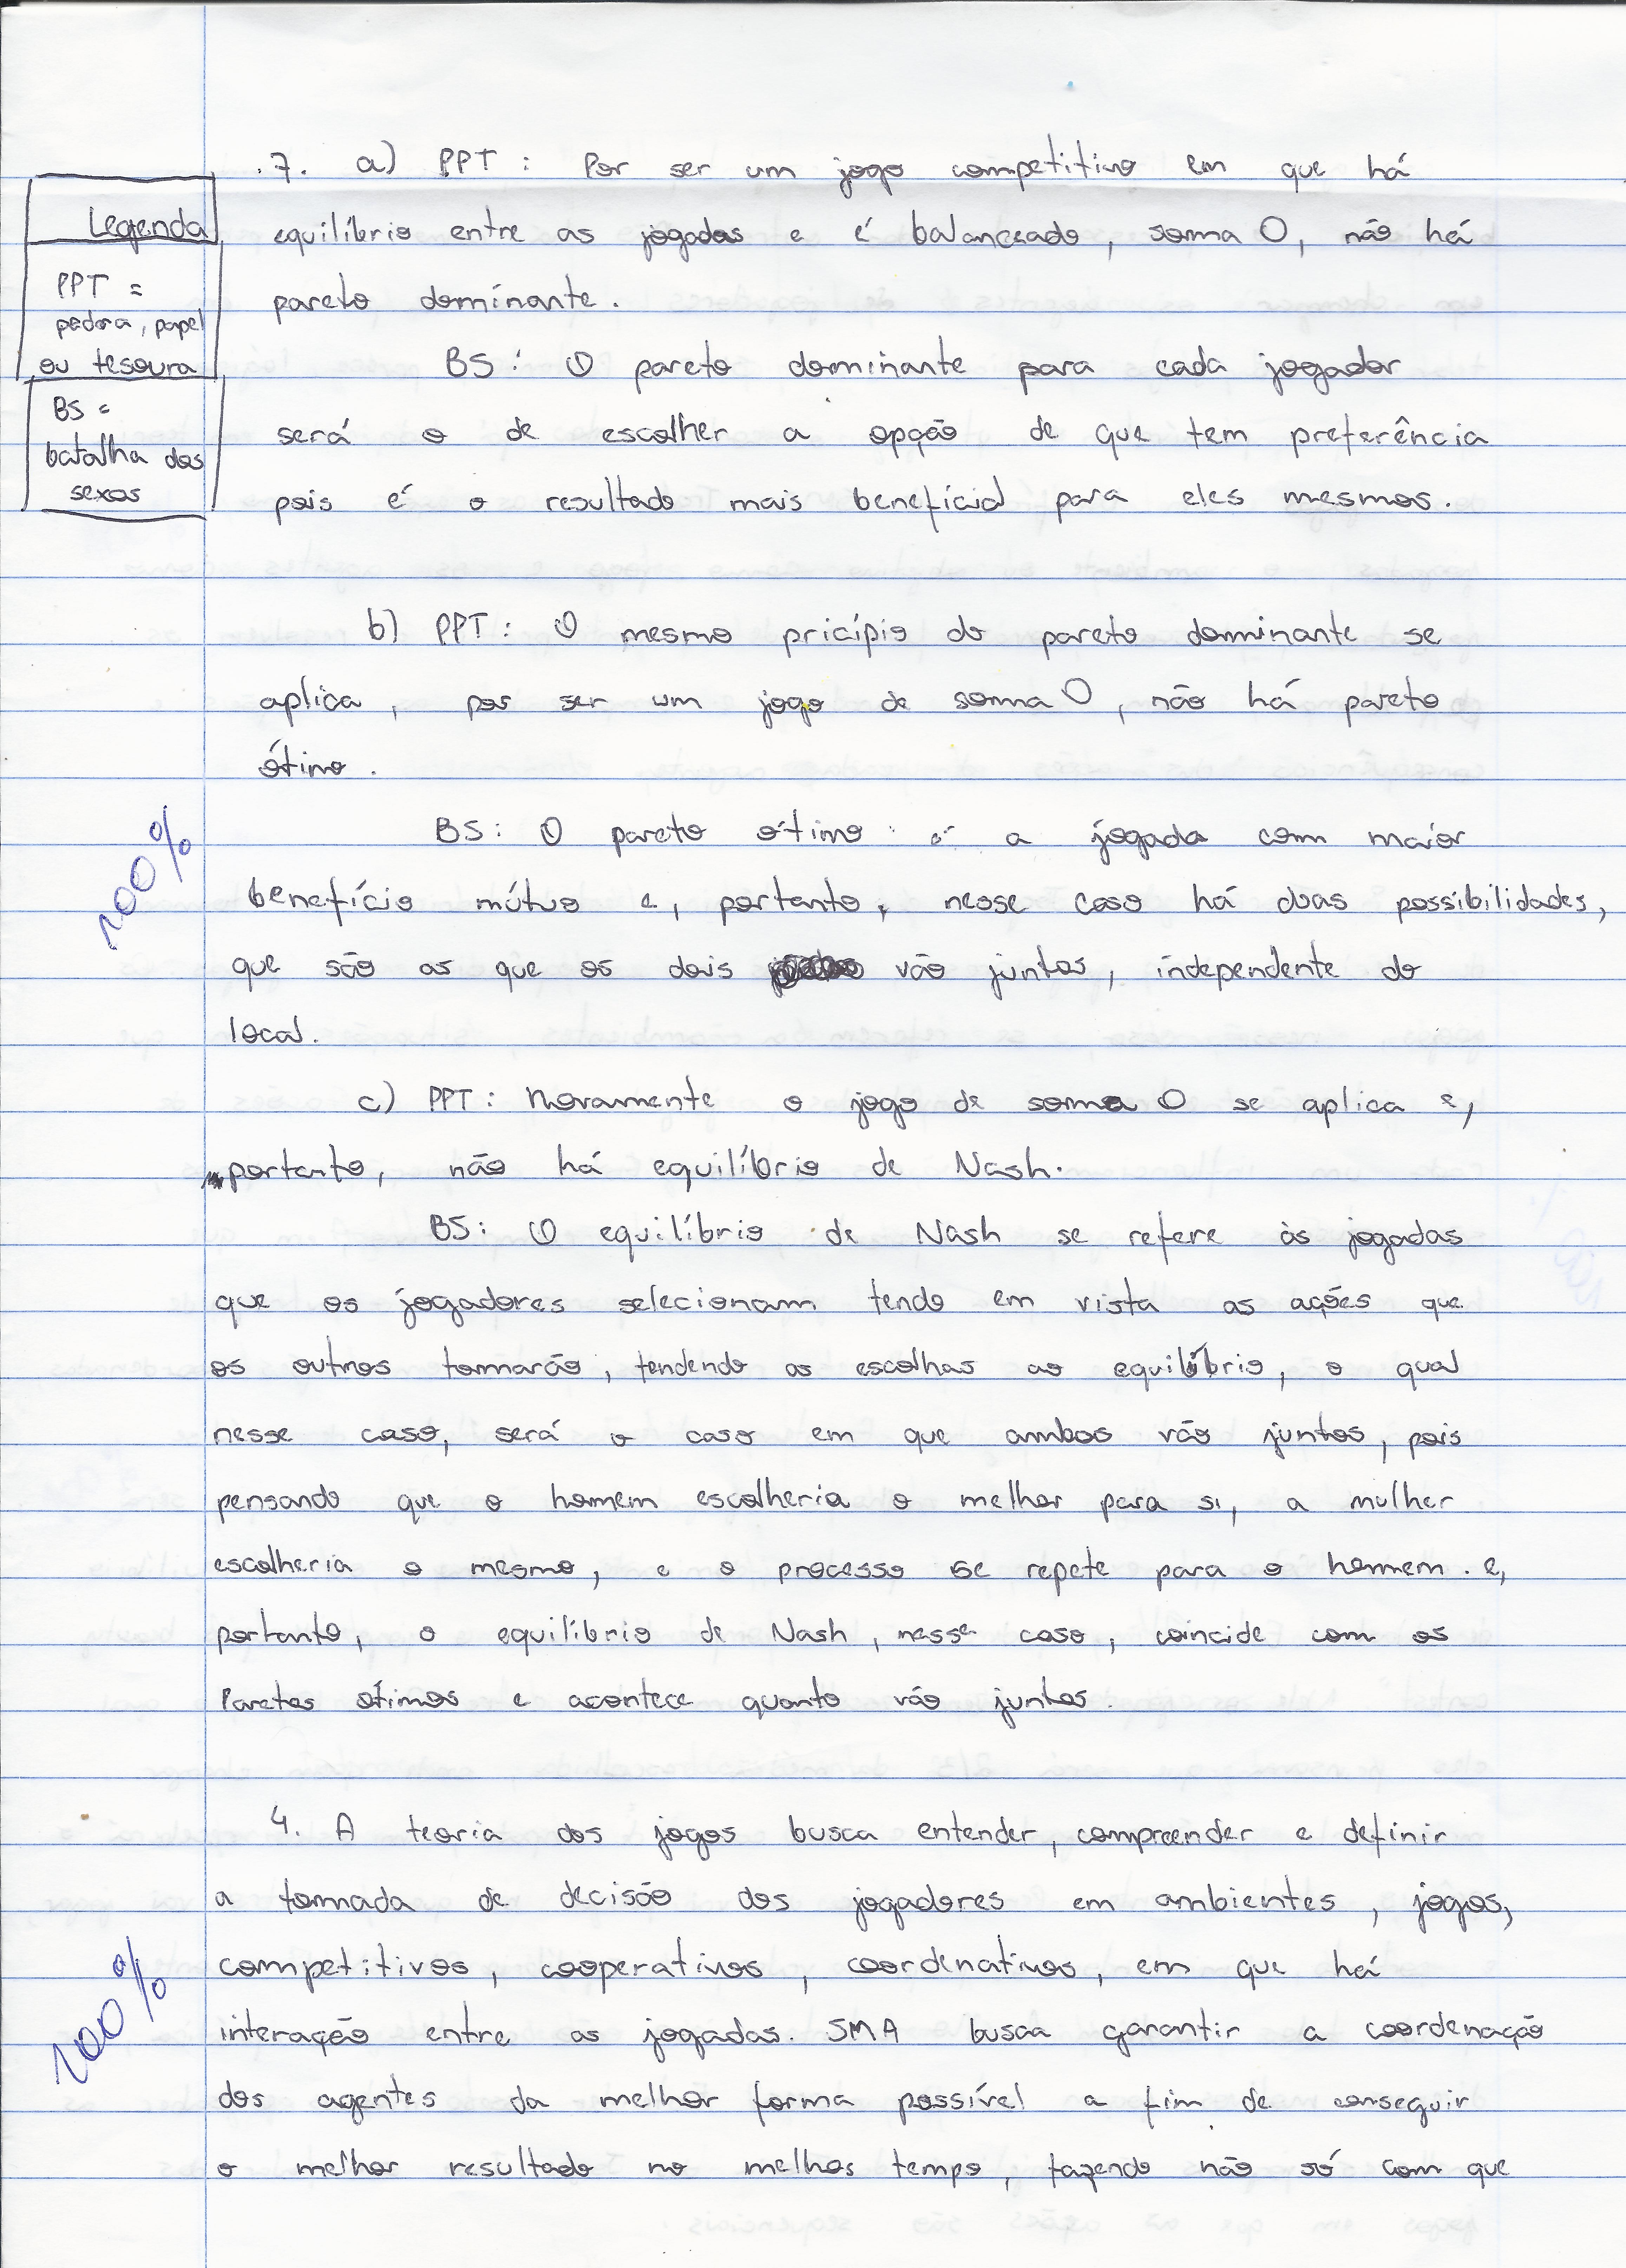 .7. a) PPT : Por ser um jogo competitivo em que há
equilíbrio entre as jogadas e é balanceado, soma 0, não há
pareto dominante.
BS: O pareto dominante para cada jogador
será o de escolher a opção de que tem preferência
pois é o resultado mais benefícial para eles mesmos.
Legenda
PPT =
pedra, papel
ou tesoura
BS =
batalha dos
sexos
b) PPT: O mesmo pricípio do pareto dominante se
aplica, por ser um jogo de soma 0, não há pareto
ótimo.
BS: O pareto ótimo é a jogada com maior
benefício mútuo e, portanto, nesse caso há duas possibilidades,
que são as que os dois vão juntos, independente do
local.
100%
c) PPT: Novamente o jogo de soma 0 se aplica e,
portanto, não há equilíbrio de Nash.
BS: O equilíbrio de Nash se refere às jogadas
que os jogadores selecionam tendo em vista as ações que
os outros tomarão, tendendo as escolhas ao equilíbrio, o qual
nesse caso, será o caso em que ambos vão juntos, pois
pensando que o homem escolheria o melhor para si, a mulher
escolheria o mesmo, e o processo se repete para o homem. e,
portanto, o equilíbrio de Nash, nesse caso, coincide com os
Paretos ótimos e acontece quanto vão juntos.
4. A teoria dos jogos busca entender, compreender e definir
a tomada de decisão dos jogadores em ambientes, jogos,
competitivos, cooperativos, coordenativos, em que há
interação entre as jogadas. SMA busca garantir a coordenação
dos agentes da melhor forma possível a fim de conseguir
o melhor resultado no melhor tempo, fazendo não só com que
100%